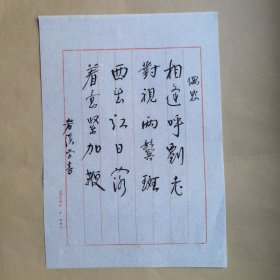 偶思
相逢呼劉老
對視兩鬢斑
西出江日落
着意緊加鞭